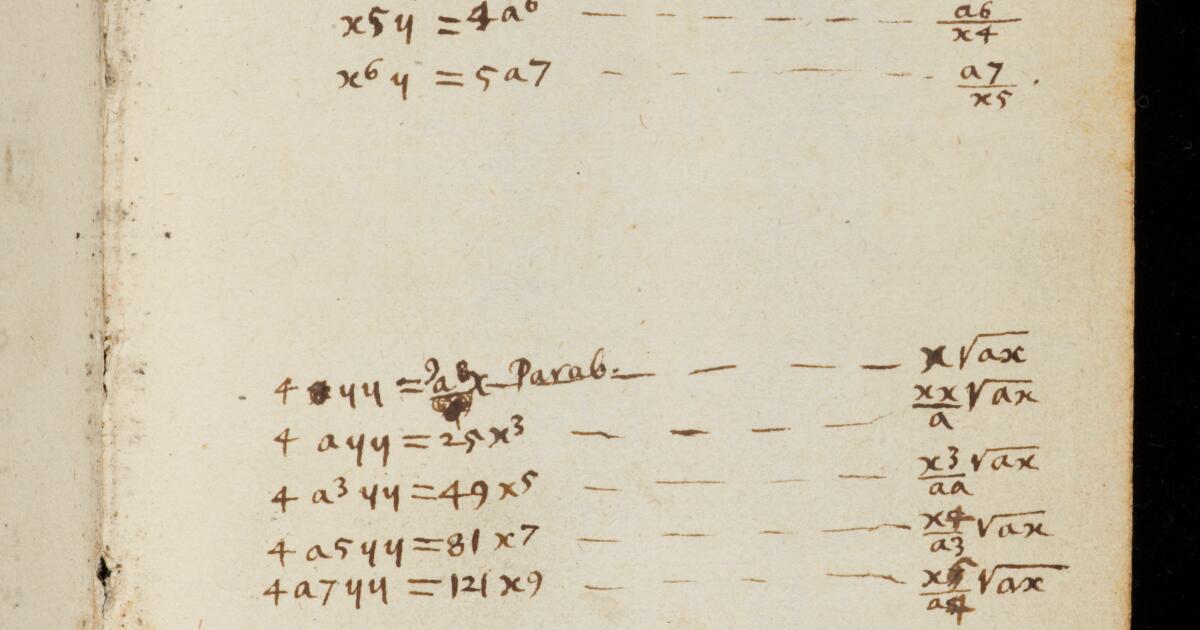 x5y = 4a6 — — — — — — a6/x4
x6y = 5a7 — — — — — a7/x5.
4 yy = 9ax Parab. — — — — x√ax
4 ayy = 25x3 — — — — xx/a √ax
4 a3 yy = 49x5 — — — — x3/aa √ax
4 a5 yy = 81x7 — — — — x4/a3 √ax
4 a7 yy = 121x9 — — — — x5/a4 √ax